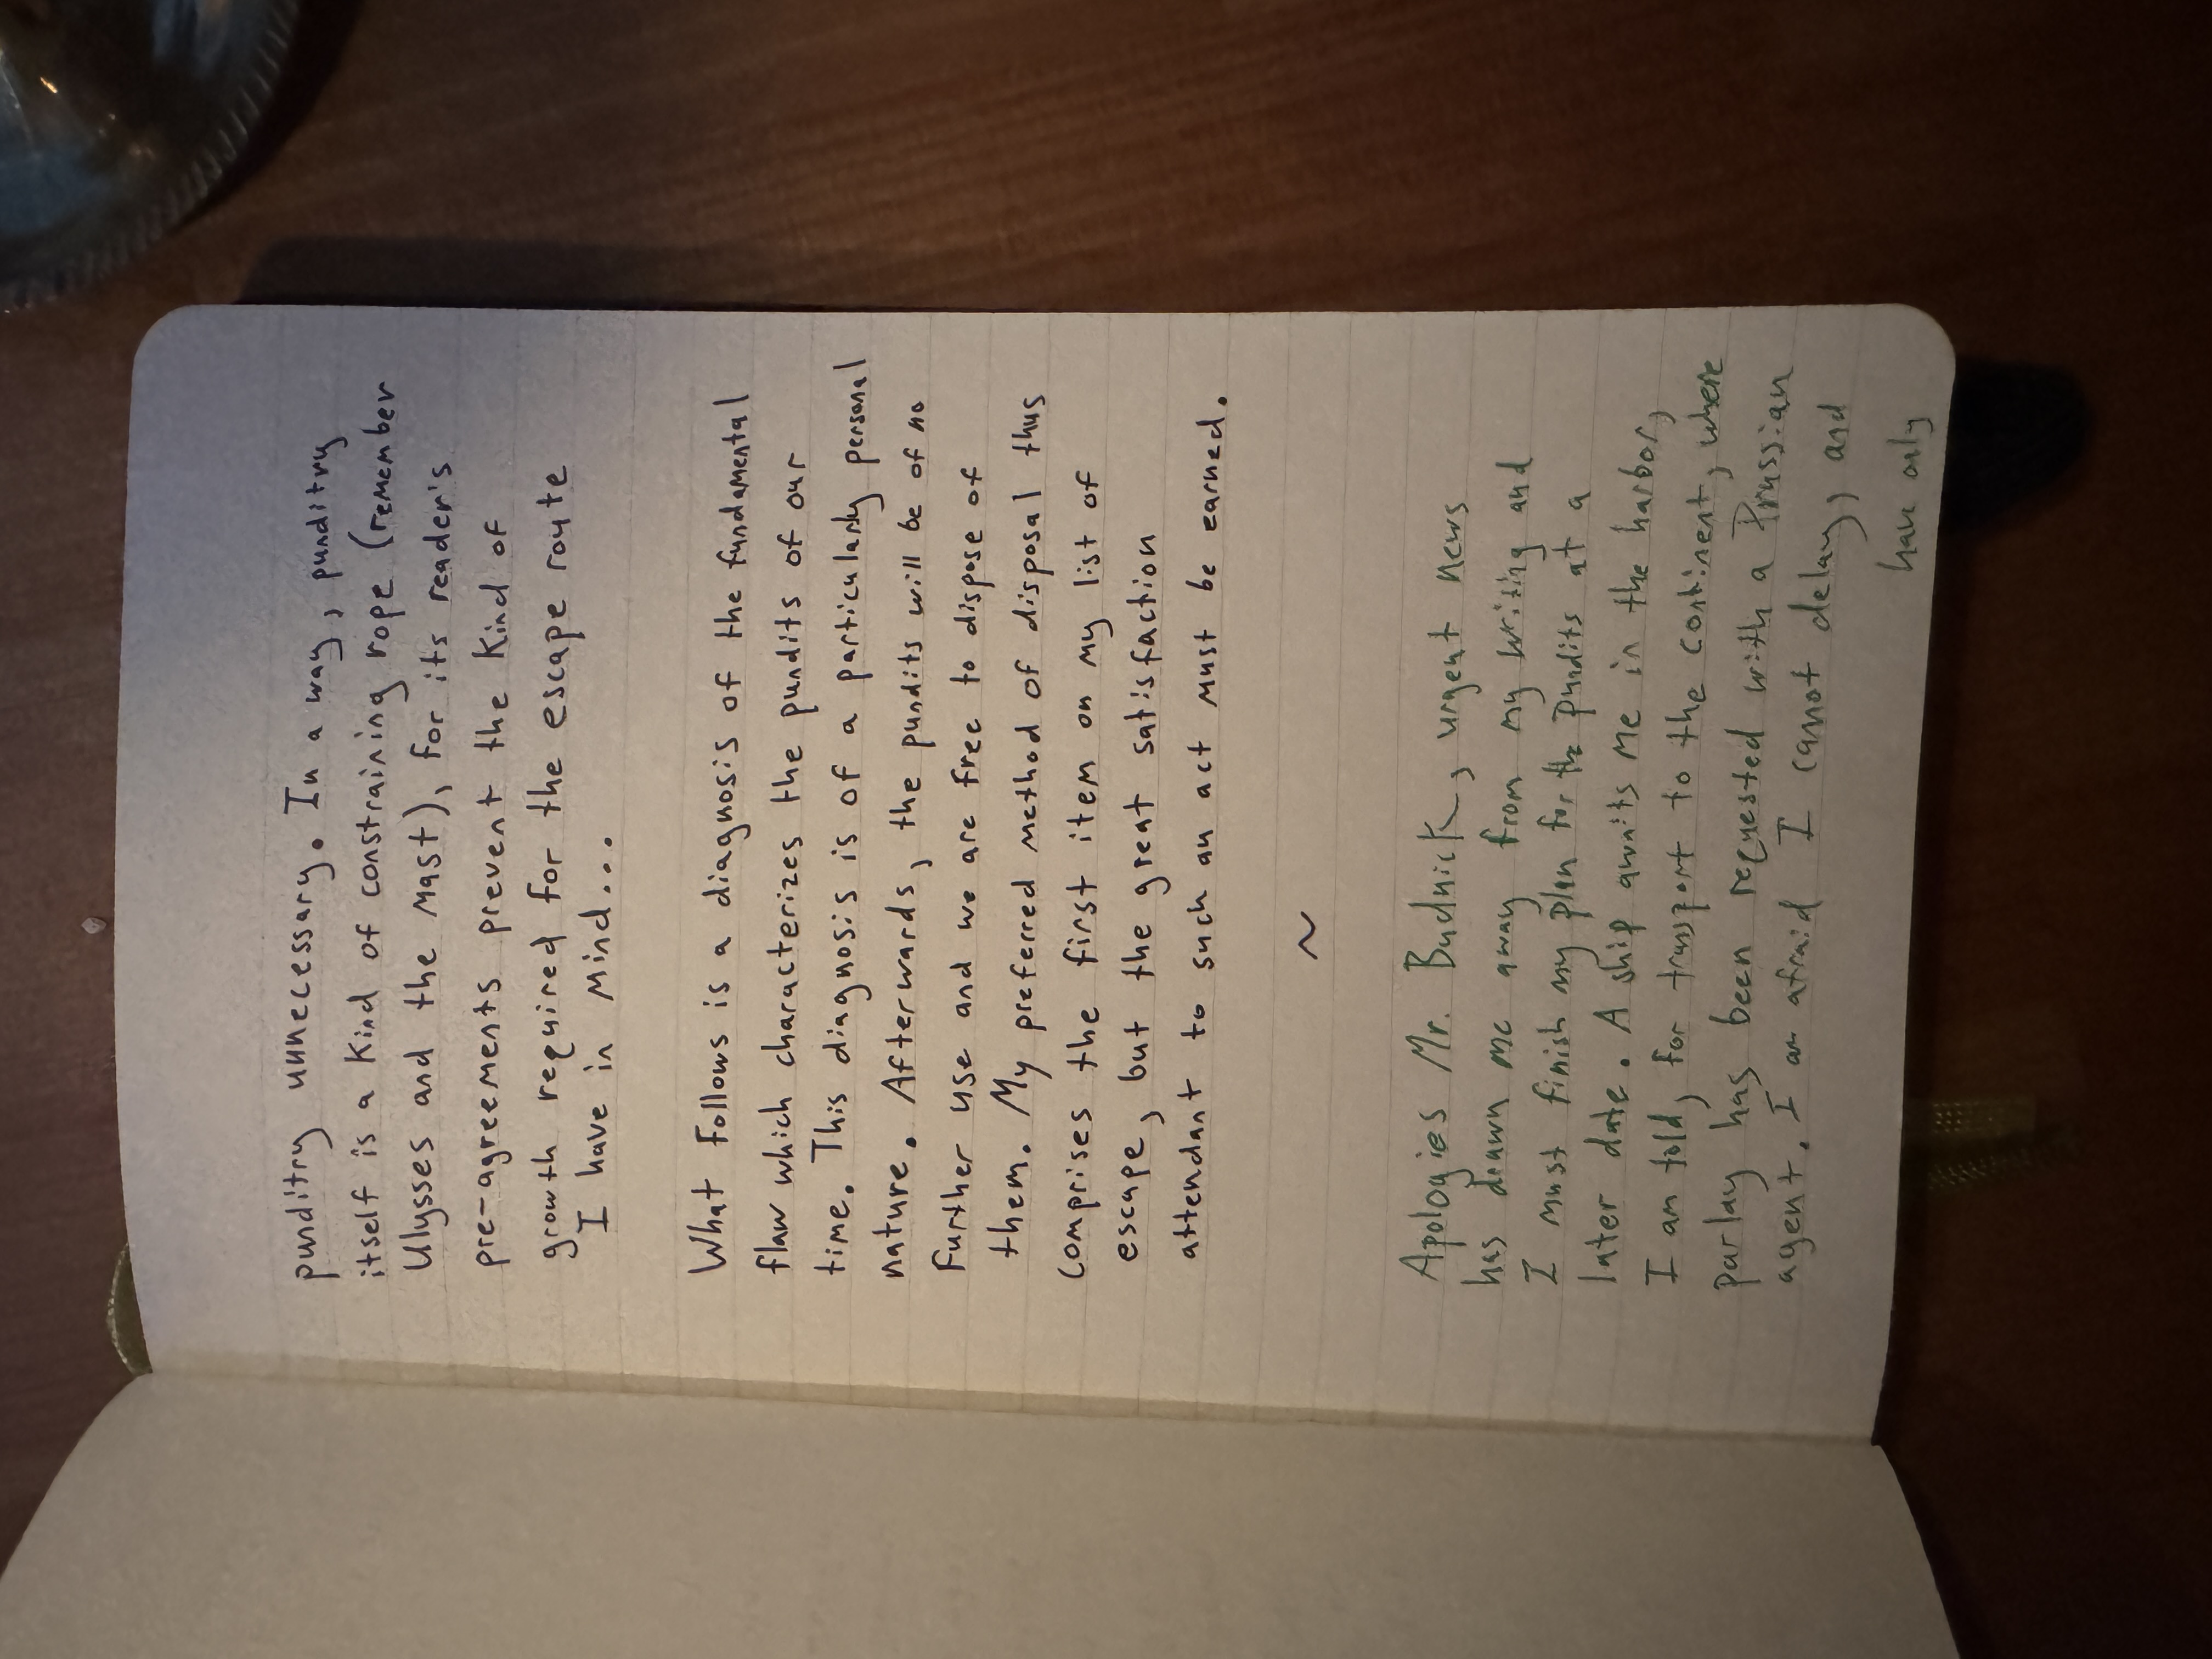 punditry unnecessary. In a way, punditry
itself is a kind of constraining rope (remember
Ulysses and the mast), for its reader's
pre-agreements prevent the kind of
growth required for the escape route
I have in mind...
What follows is a diagnosis of the fundamental
flaw which characterizes the pundits of our
time. This diagnosis is of a particularly personal
nature. Afterwards, the pundits will be of no
further use and we are free to dispose of
them. My preferred method of disposal thus
comprises the first item on my list of
escape, but the great satisfaction
attendant to such an act must be earned.
~
Apologies Mr. Budnick, urgent news
has drawn me away from my writing and
I must finish my plan for the pundits at a
later date. A ship awaits me in the harbor,
I am told, for transport to the continent, where
parlay has been requested with a Prussian
agent. I am afraid I cannot delay, and
have only